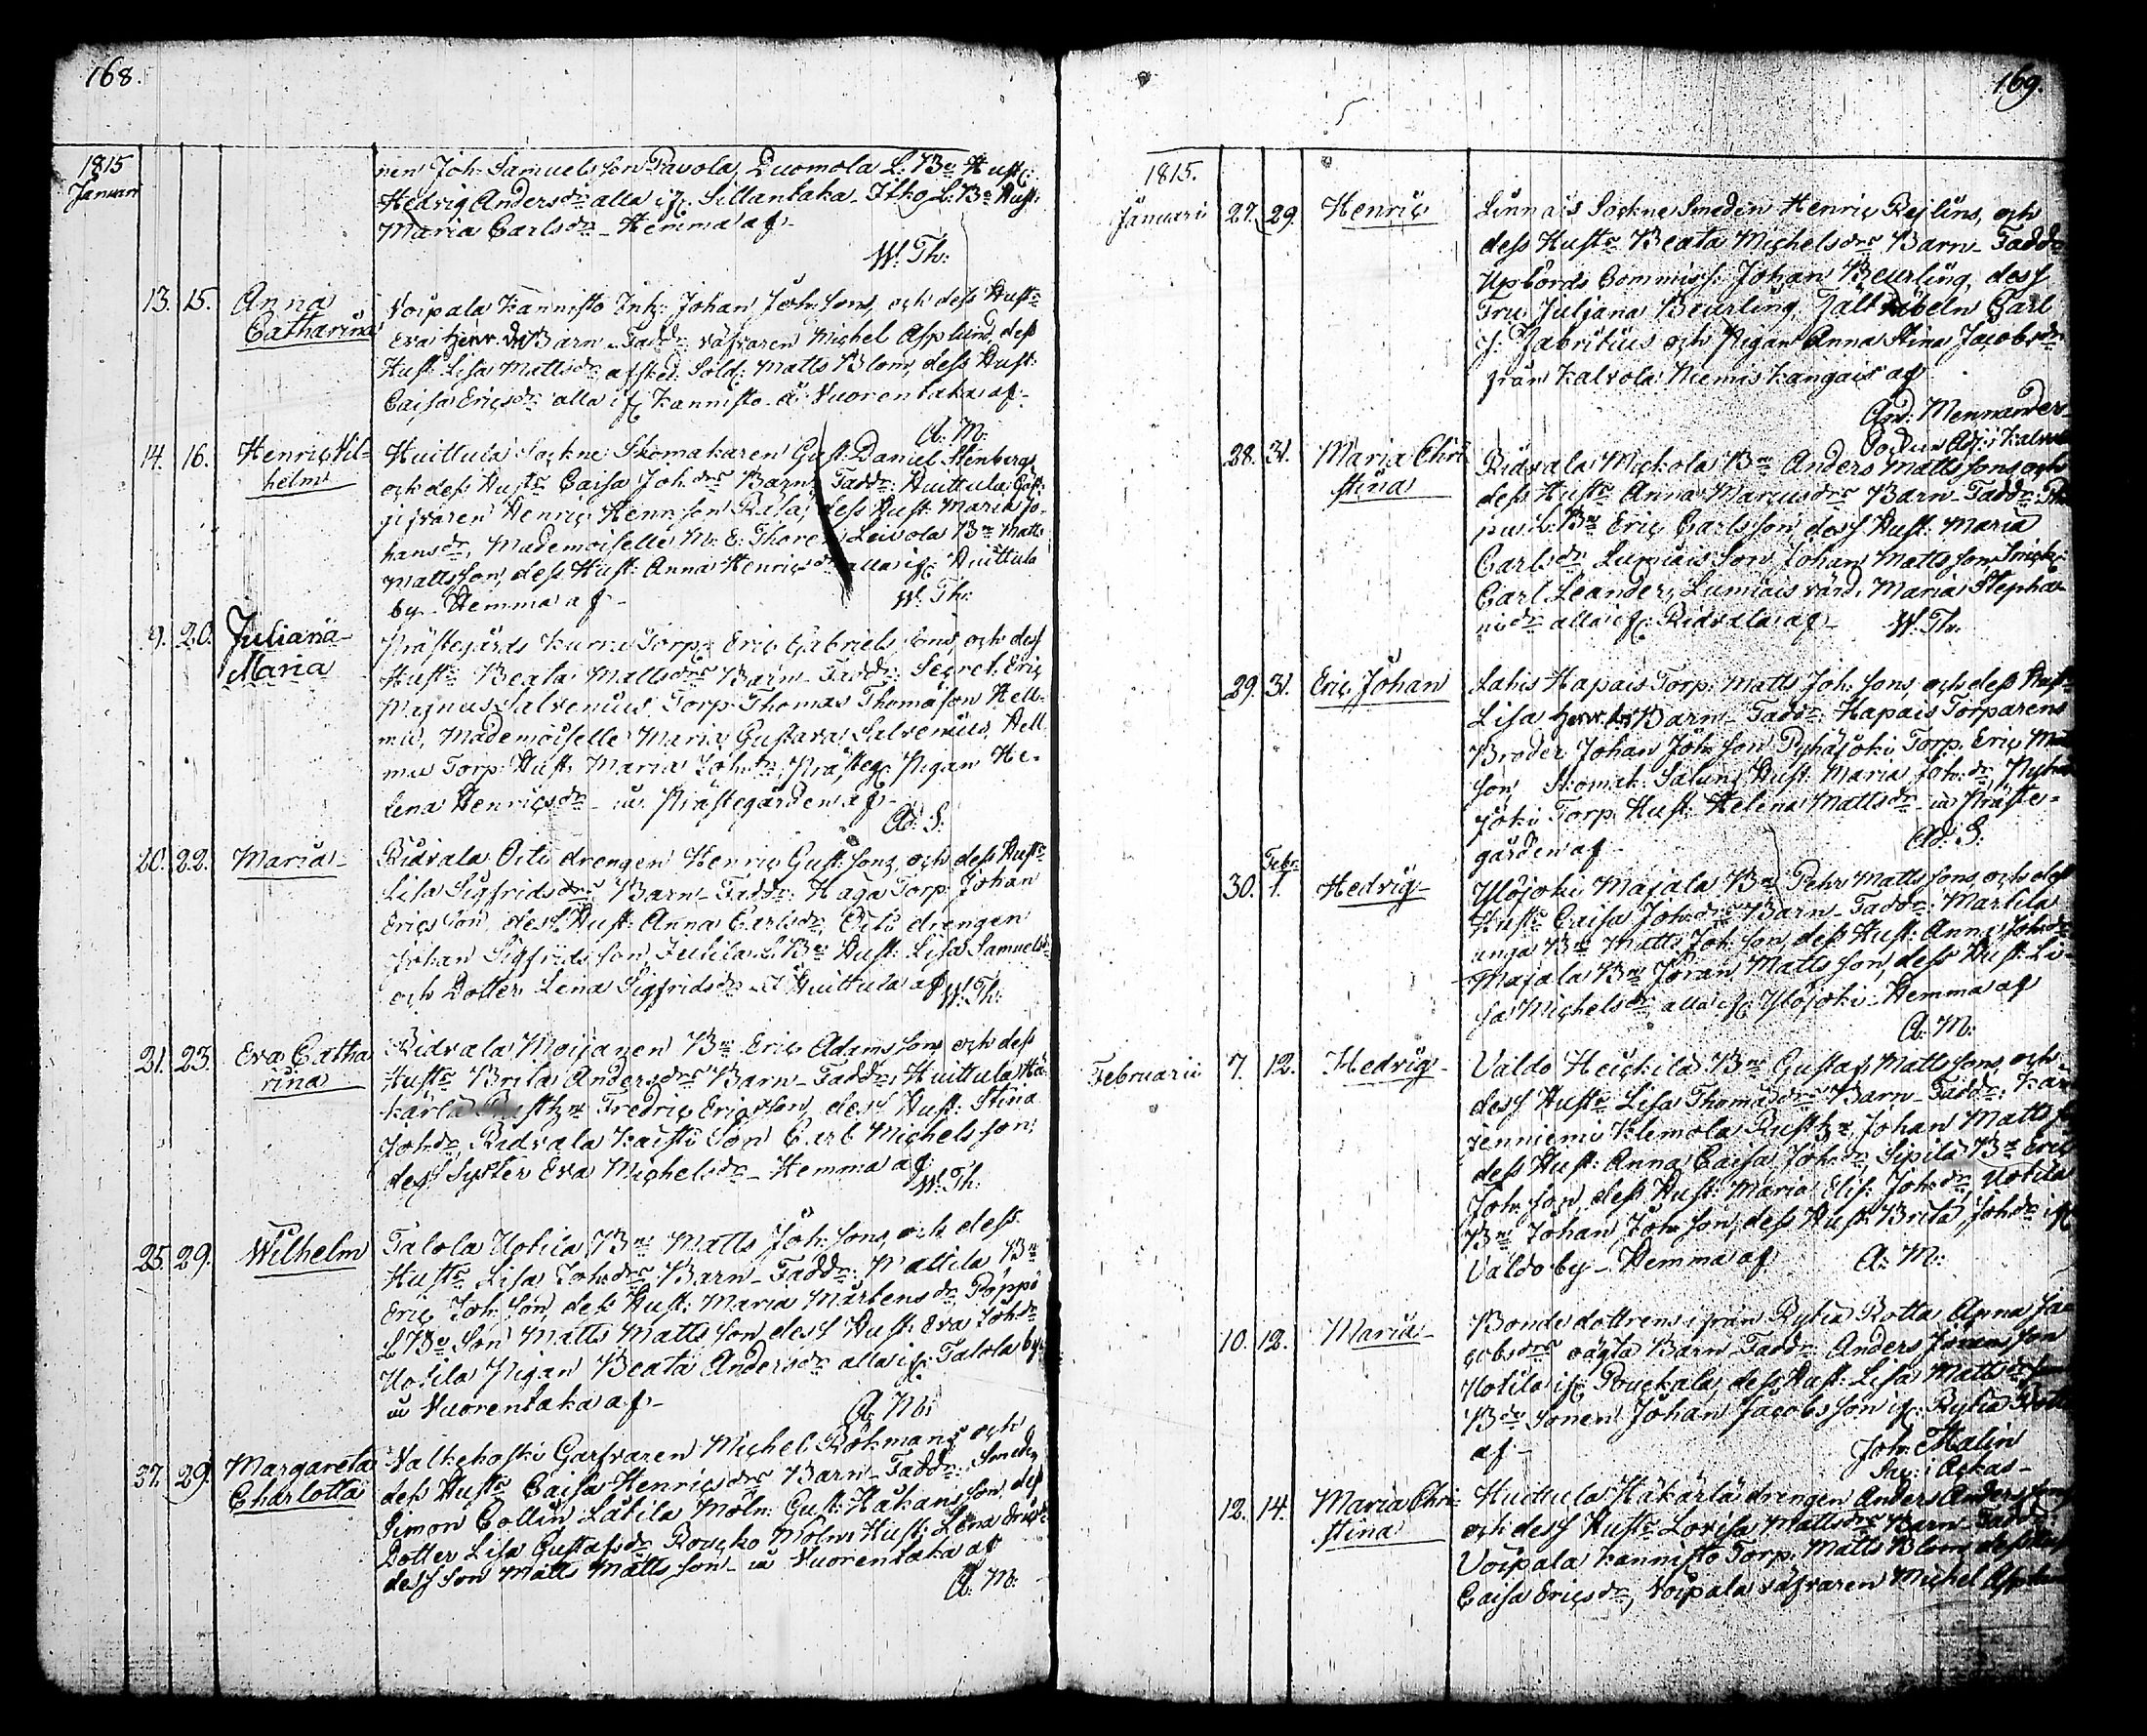 168.
1815
Januari
nen Joh. Samuelsson Pavola, Duomola L. Be Hust:
Hedvig Anders dr alla i fr. Sillantaka Itko L. Be Hust:
Maria Carls dr Hemma af
W. Th:
13. 15. Anna Catharina
Voipala Kannisto Inh: Johan Joh: sons, och dess Hustr
Eva Henr. drs Barn Faddr: väfvaren Michel Asplund, dess
Hust: Lisa Matts dr afsked: Sold: Matts Blom, dess Hust:
Caisa Erics dr alla i fr Kannisto å Vuorentaka af
A. M:
14. 16. Henric Vilhelm
Huittula Sockne Skomakaren Gust. Daniel Stenbergs
och dess Hustr Caisa Joh. drs Barn Faddr: Huittula
gifvaren Henric Henr son Rasa, dess Hust: Maria Jo-
hans dr, Mademoiselle M. E. Thoren Leivola Bn Matts
Mattsson, dess Hust: Anna Henrics dr alla i fr Huittula
by Hemma af
W. Th:
9. 20. Juliana Maria
Prästegårds Kurru Torp: Eric Gabriels sons, och dess
Hustr Beata Matts drs Barn Faddr: Secret. Eric
Magnus Salvenius Torp. Thomas Thomasson Hell-
mu, Mademoiselle Maria Gustava Salvenius, Hell
mu Torp: Hust: Maria Joh: dr Prästeg: Pigan He-
lena Henrics dr uu Prästegården af
Ad. S:
20. 22. Maria
Ridvala Oiti drengen Henric Gust: sons, och dess Hustr
Lisa Sigfrids drs Barn Faddr: Haga Torp: Johan
Ericsson, dess Hust: Anna Carls dr, Oiti drengen
Johan Sigfrids son, Jutila L. Be Hust: Lisa Samuels
och Dotter Lena Sigfrids dr i Huittula af
W. Th:
21. 23. Eva Catharina
Ridvala Moijanen Bns Eric Adams sons och dess
Hustr Brita Anders drs Barn Faddr: Huittula Hä-
kärlä Rusth. Fredric Ericsson, dess Hust: Stina
Joh: dr, Ridvala Kaisti Son Carl Michels son
dess Syster Eva Michels dr Hemma af
W. Th:
25. 29. Wilhelm
Talola Uotila Bns Matts Joh: sons, och dess
Hustr Lisa Joh: drs Barn Faddr: Mattila Bn
Eric Joh: son, dess Hust: Maria Mårtens dr Poppo
L Be Son Matts Matts son, dess Hust: Eva Joh: dr
Uotila Pigan Beata Anders dr alla i fr. Talola by
uu Vuorentaka af
A. M:
37. 29. Margareta Charlotta
Valkehoski Garfvaren Michel Rökmans och
dess Hustr Caisa Henrics drs Barn Faddr: Smeden
Simon Collin Lätilä Möln: Gust: Håkans son, dess
Dotter Lisa Gustafs dr Roucko Möln: Hust: Lena
dess Son Matts Matts son uu Vuorentaka af
A. M:
169.
1815.
Januarii 27. 29. Henric
Linnais Sockne Smeden Henric Rejlins, och
dess Hustr Beata Michels drs Barn Faddr
Upbörds Commiss: Johan Beurling, dess
Fru Juljana Beurling, Carl
J. Fabritius och Pigan Anna Stina Jacobs dr
från Kalvola Niemis Kangais af
And: Mennander
28. 31. Maria Christina
Ridvala Mickola Bns Anders Matts sons och
dess Hustr Anna Marcus drs Barn Faddr:
L: Bn Eric Carlsson, dess Hust: Maria
Carls dr, Lumiais Son Johan Matts son,
Carl Leander, Lumiais värd: Maria Stepha-
ni dr alla i fr Ridvala af
W. Th:
29. 31. Eric Johan
Lahis Hapais Torp: Matts Joh: sons och dess Hustr
Lisa Henr. drs Barn Faddr: Hapais Torparens
Broder Johan Joh: son Pyhäjoki Torp. Eric
son Skomak: Salun, Hust: Maria Joh: dr, Pyhä
joki Torp: Hust: Helena Matts dr uu Präste-
gården af
Ad: S:
30. Febr. 1. Hedvig
Ylöjoki Majala Bns Pehr Matts sons, och dess
Hustr Caisa Joh: drs Barn Faddr: Martila
unga Bn Matts Joh: son, dess Hust: Anna Joh: dr
Majala Bn Jöran Matts son, dess Hust: Li-
sa Michels dr alla i fr Ylöjoki Hemma af
A: M:
Februarii 7. 12. Hedvig
Valdo Heickilä Bns Gustaf Matts sons, och
dess Hustr Lisa Thomas drs Barn Faddr: Kär-
jenniemi Klemola Rusth. Johan Matts
dess Hust: Anna Caisa Joh: dr, Sipilä Bn Eric
Joh: son, dess Hust: Maria Elis: Joh: dr, Uotila
Bn Johan Joh: son, dess Hust: Brita Joh: dr i fr
Valdo by Hemma af
A: M:
10. 12. Maria
Bonde dottrens ifrån Rytiä Rotta Anna Ja-
cobs drs oägta Barn Faddr: Anders
Uotila i fr Pouckala, dess Hust: Lisa Matts dr
Bde Sonen Johan Jacobs son i fr Rytiä
af
Joh: Malin
Sac: i Ackas
12. 14. Maria Christina
Huittula Häkärlä drengen Anders Anders
och dess Hustr Lovisa Matts drs Barn Faddr:
Voipala Kannisto Torp. Matts Blom, dess
Caisa Erics dr, Voipala väfvaren Michel